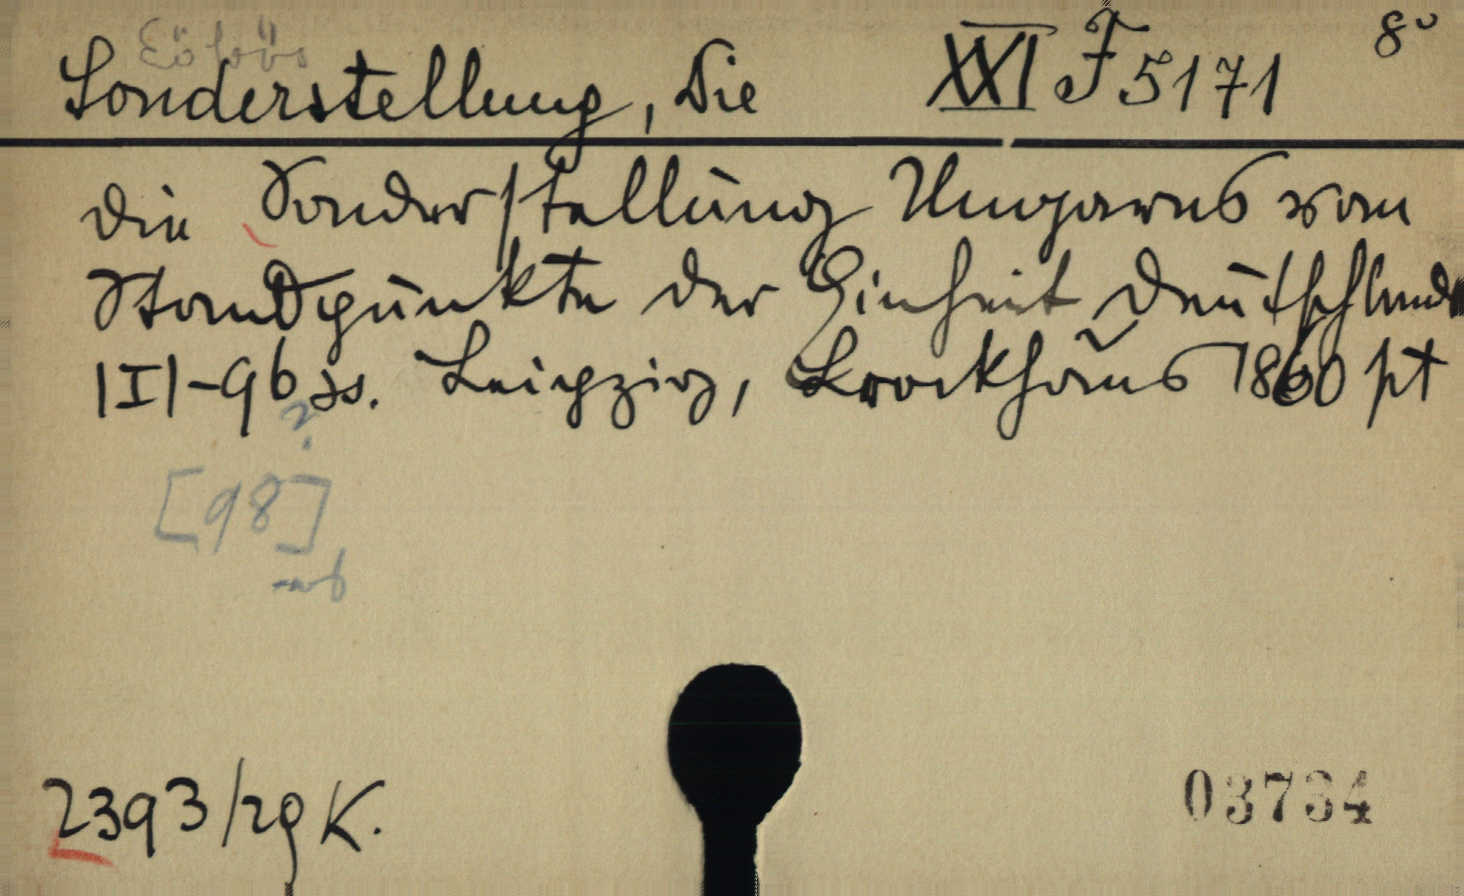 Eötvös
Sonderstellung, Die XXI F 5171 8°
Die Sonderstellung Ungarns vom
Standpunkte der Einheit Deutschlands
|I|-96 ss. Leipzig, Brockhaus 1860 pt
?
[98]
2393/29 K.
03734